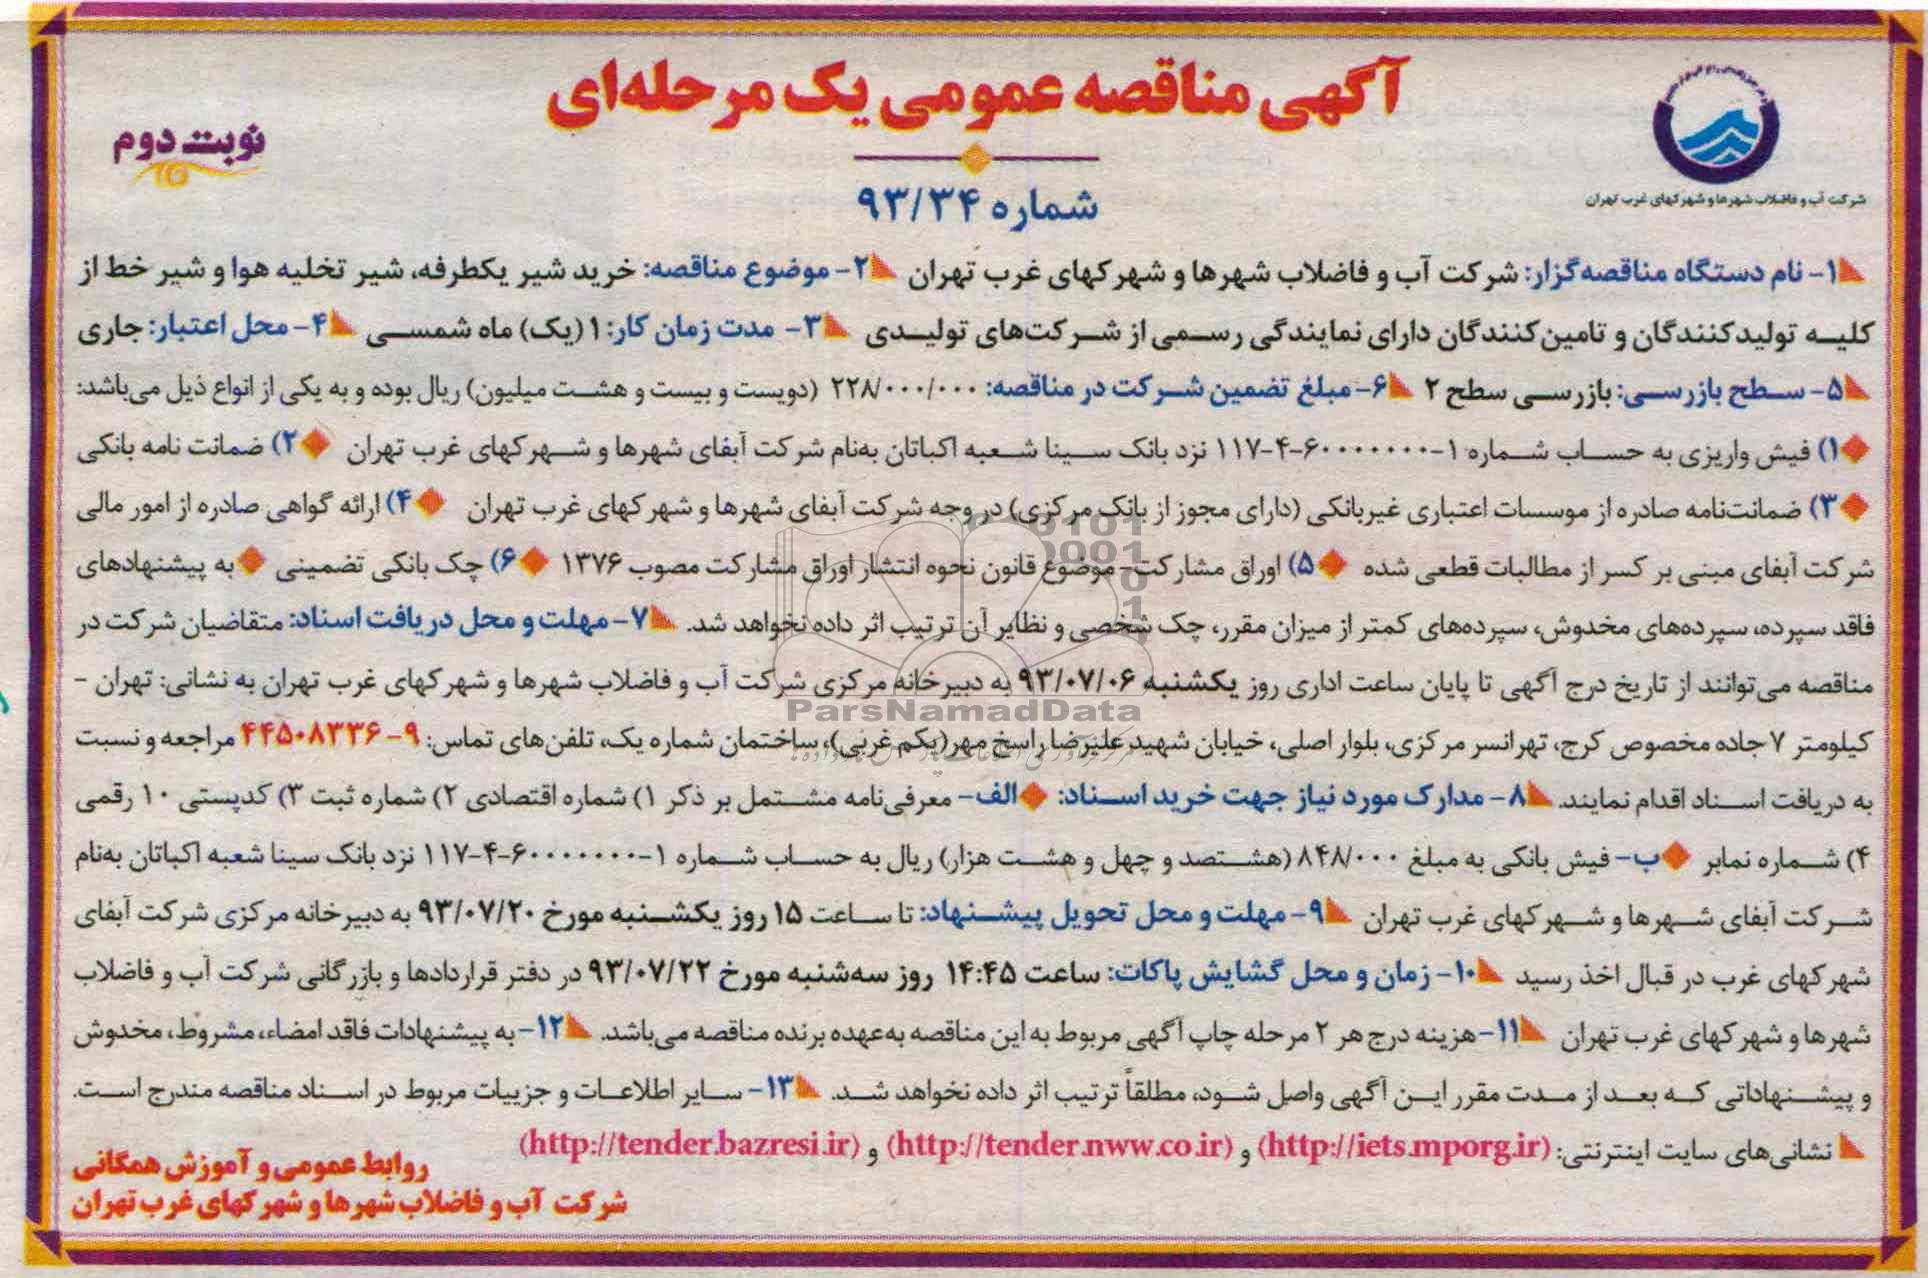 آگهی مناقصه عمومی یک مرحله‌ای
نوبت دوم
شماره ۹۳/۳۴
شرکت آب و فاضلاب شهرها و شهرکهای غرب تهران
۱- نام دستگاه مناقصه‌گزار: شرکت آب و فاضلاب شهرها و شهرکهای غرب تهران ۲- موضوع مناقصه: خرید شیر یکطرفه، شیر تخلیه هوا و شیر خط از
کلیه تولیدکنندگان و تامین‌کنندگان دارای نمایندگی رسمی از شرکت‌های تولیدی ۳- مدت زمان کار: ۱ (یک) ماه شمسی ۴- محل اعتبار: جاری
۵- سطح بازرسی: بازرسی سطح ۲ ۶- مبلغ تضمین شرکت در مناقصه: ۲۲۸/۰۰۰/۰۰۰ (دویست و بیست و هشت میلیون) ریال بوده و به یکی از انواع ذیل می‌باشد:
۱) فیش واریزی به حساب شماره ۱-۶۰۰۰۰۰۰۰-۴-۱۱۷ نزد بانک سینا شعبه اکباتان به‌نام شرکت آبفای شهرها و شهرکهای غرب تهران ۲) ضمانت نامه بانکی
۳) ضمانت‌نامه صادره از موسسات اعتباری غیربانکی (دارای مجوز از بانک مرکزی) در وجه شرکت آبفای شهرها و شهرکهای غرب تهران ۴) ارائه گواهی صادره از امور مالی
شرکت آبفای مبنی بر کسر از مطالبات قطعی شده ۵) اوراق مشارکت- موضوع قانون نحوه انتشار اوراق مشارکت مصوب ۱۳۷۶ ۶) چک بانکی تضمینی به پیشنهادهای
فاقد سپرده، سپرده‌های مخدوش، سپرده‌های کمتر از میزان مقرر، چک شخصی و نظایر آن ترتیب اثر داده نخواهد شد. ۷- مهلت و محل دریافت اسناد: متقاضیان شرکت در
مناقصه می‌توانند از تاریخ درج آگهی تا پایان ساعت اداری روز یکشنبه ۹۳/۰۷/۰۶ به دبیرخانه مرکزی شرکت آب و فاضلاب شهرها و شهرکهای غرب تهران به نشانی: تهران -
کیلومتر ۷ جاده مخصوص کرج، تهرانسر مرکزی، بلوار اصلی، خیابان شهید علیرضا راسخ مهر(یکم غربی)، ساختمان شماره یک، تلفن‌های تماس: ۹-۴۴۵۰۸۳۳۶ مراجعه و نسبت
به دریافت اسناد اقدام نمایند. ۸- مدارک مورد نیاز جهت خرید اسناد: الف- معرفی‌نامه مشتمل بر ذکر ۱) شماره اقتصادی ۲) شماره ثبت ۳) کدپستی ۱۰ رقمی
۴) شماره نمابر ب- فیش بانکی به مبلغ ۸۴۸/۰۰۰ (هشتصد و چهل و هشت هزار) ریال به حساب شماره ۱-۶۰۰۰۰۰۰۰-۴-۱۱۷ نزد بانک سینا شعبه اکباتان به‌نام
شرکت آبفای شهرها و شهرکهای غرب تهران ۹- مهلت و محل تحویل پیشنهاد: تا ساعت ۱۵ روز یکشنبه مورخ ۹۳/۰۷/۲۰ به دبیرخانه مرکزی شرکت آبفای
شهرکهای غرب در قبال اخذ رسید ۱۰- زمان و محل گشایش پاکات: ساعت ۱۴:۴۵ روز سه‌شنبه مورخ ۹۳/۰۷/۲۲ در دفتر قراردادها و بازرگانی شرکت آب و فاضلاب
شهرها و شهرکهای غرب تهران ۱۱- هزینه درج هر ۲ مرحله چاپ آگهی مربوط به این مناقصه به‌عهده برنده مناقصه می‌باشد. ۱۲- به پیشنهادات فاقد امضاء، مشروط، مخدوش
و پیشنهاداتی که بعد از مدت مقرر این آگهی واصل شود، مطلقاً ترتیب اثر داده نخواهد شد. ۱۳- سایر اطلاعات و جزییات مربوط در اسناد مناقصه مندرج است.
نشانی‌های سایت اینترنتی: (http://iets.mporg.ir) و (http://tender.nww.co.ir) و (http://tender.bazresi.ir)
روابط عمومی و آموزش همگانی
شرکت آب و فاضلاب شهرها و شهرکهای غرب تهران
ParsNamadData